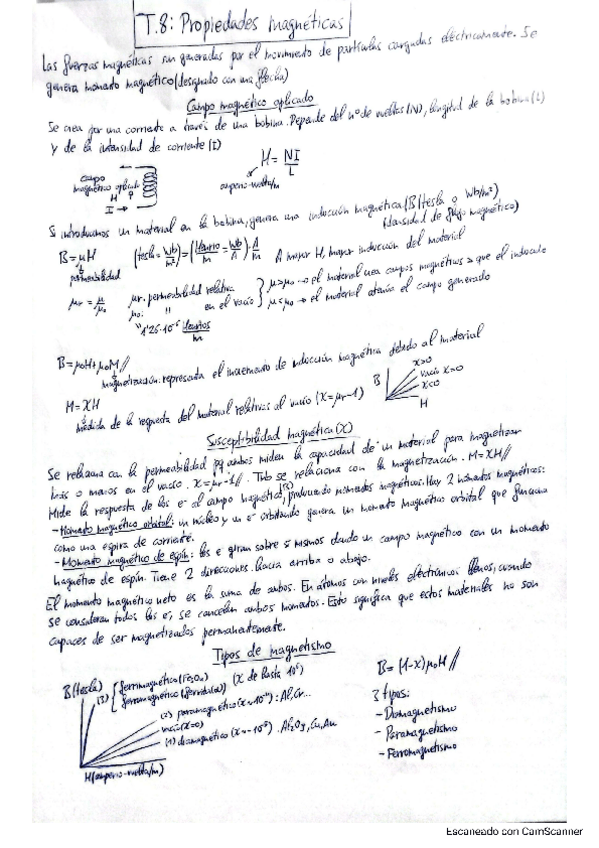 T.8: Propiedades magnéticas
Las fuerzas magnéticas son generadas por el movimiento de partículas cargadas eléctricamente. Se
genera momento magnético (designado con una flecha)
Campo magnético aplicado
Se crea por una corriente a través de una bobina. Depende del nº de vueltas (N), longitud de la bobina (L)
y de la intensidad de corriente (I)
H = NI/L
campo
magnético aplicado
H
I →
amperio-vuelta/m
Si introducimos un material en la bobina, genera una inducción magnética (B) (tesla o Wb/m²)
(densidad de flujo magnético)
B = μH
(tesla = Wb/m²) = (Henrio/m = Wb/A) · A/m
A mayor H, mayor inducción del material
permeabilidad
μr = μ/μ0
μr: permeabilidad relativa
μ0: " en el vacío
1'26·10⁻⁶ Henrios/m
μ>μ0 → el material crea campos magnéticos > que el inducido
μ<μ0 → el material atenúa el campo generado
B = μ0H + μ0M //
magnetización: representa el incremento de inducción magnética debido al material
M = XH
medida de la respuesta del material relativas al vacío (X = μr-1)
B
X>0
vacío X=0
X<0
H
Susceptibilidad magnética (X)
Se relaciona con la permeabilidad pq ambos miden la capacidad de un material para magnetizar
más o menos en el vacío. X = μr-1 //. Tmb se relaciona con la magnetización. M = XH //
Mide la respuesta de los e⁻ al campo magnético, produciendo momentos magnéticos. Hay 2 momentos magnéticos:
- Momento magnético orbital: un núcleo y un e⁻ orbitando genera un momento magnético orbital que funciona
como una espira de corriente.
- Momento magnético de espín: los e⁻ giran sobre sí mismos dando un campo magnético con un momento
magnético de espín. Tiene 2 direcciones: hacia arriba o abajo.
El momento magnético neto es la suma de ambos. En átomos con niveles electrónicos llenos, cuando
se consideran todos los e⁻, se cancelan ambos momentos. Esto significa que estos materiales no son
capaces de ser magnetizados permanentemente.
Tipos de magnetismo
B (tesla)
(3) ferrimagnético
ferromagnético
(X de hasta 10⁶)
(2) paramagnético: Al, Cr...
vacío (X=0)
(1) diamagnético: Al₂O₃, Cu, Au
H (amperio-vuelta/m)
B = (1-X)μ0H //
3 tipos:
- Diamagnetismo
- Paramagnetismo
- Ferromagnetismo
Escaneado con CamScanner